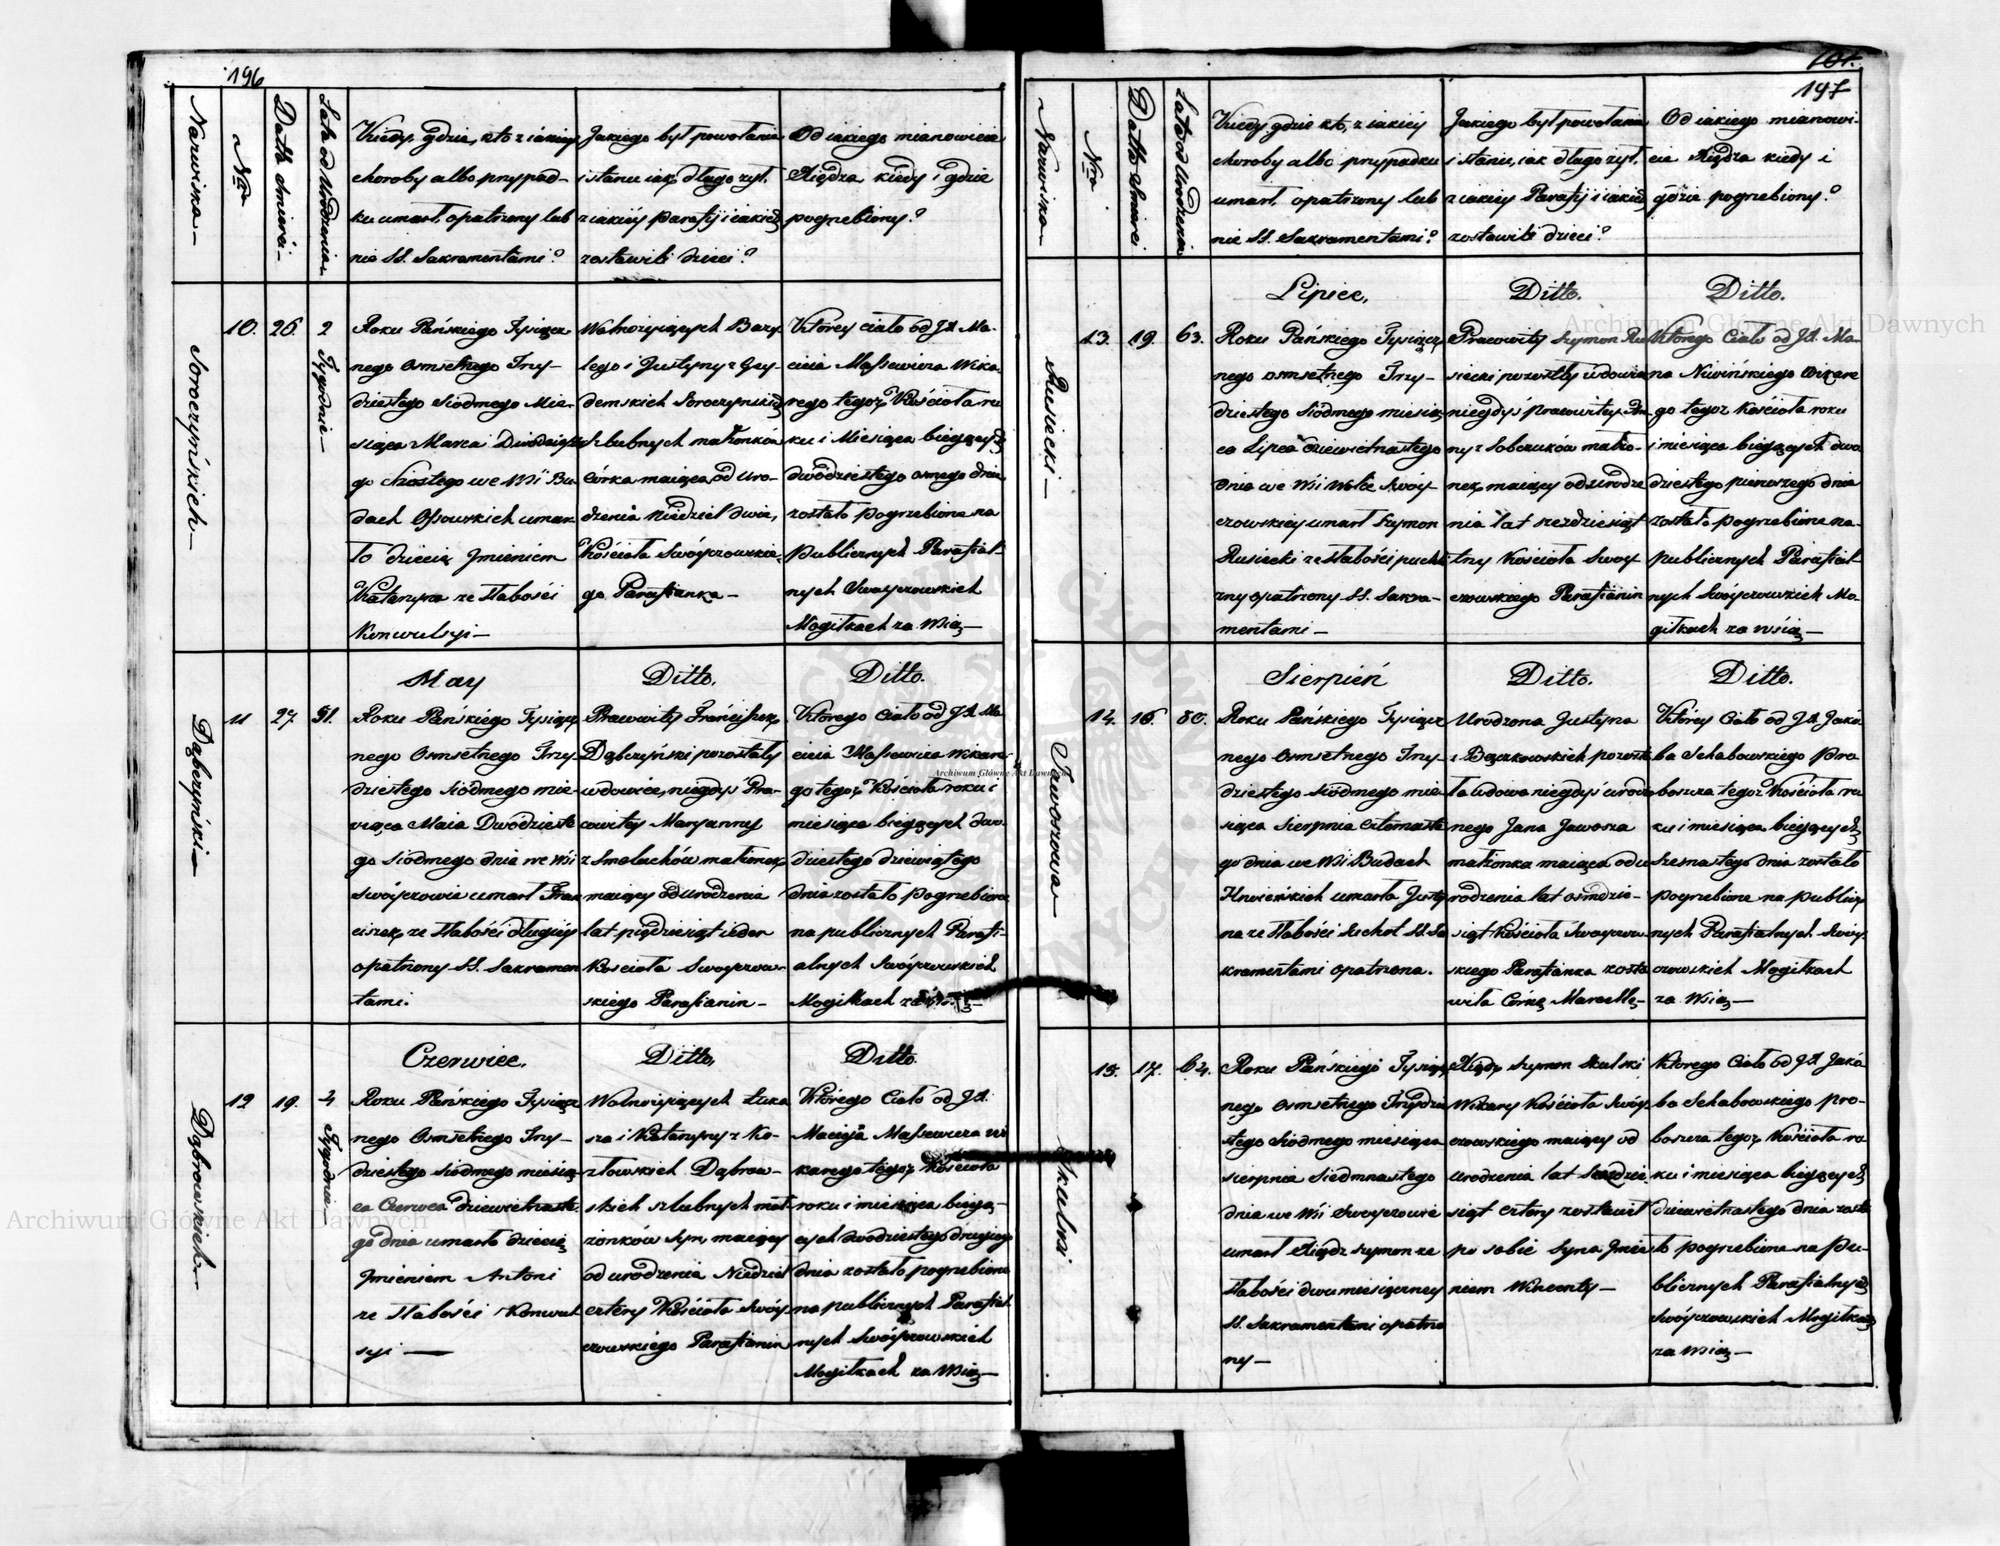 196
Nazwisko
Nro
Data śmierci
Lata od Urodzenia
Kiedy, gdzie, kto z iakiey
choroby albo przypad-
ku umarł, opatrzony lub
nie SS. Sakramentami?
Jakiego był powołania
i stanu iak długo żył,
z iakiey Parafij i iakich
zostawił dzieci?
Od iakiego mianowicie
Xiędza kiedy i gdzie
pogrzebiony?
Soroczyńskich
10.
26.
2
Tygodnie
Roku Pańskiego Tysiącz
nego Osmsetnego Trzy-
dziestego Siódmego Mie-
siąca Marca Dwódzieste
go Szóstego we Wsi Bu
dach Ossowskich umar
ło dziecię Jmieniem
Katarzyna ze słabości
Konwulsyi
Wolnożyiących Bazy
lego i Justyny z Gry-
demskich Soroczyńskich
szlubnych małżonków
Córka maiąca od Uro-
dzenia Niedziel dwie,
Kościoła Swóyczowskie
go Parafianka
Którey ciało od JX. Ma-
cieia Massewicza Wika
rego tegoż Kościoła ro
ku i Miesiąca bieżących
dwódziestego osmego dnia
zostało pogrzebione na
publicznych Parafial-
nych Swóyczowskich
Mogiłkach za Wsią
Dąbczyński
11
27.
51.
May
Roku Pańskiego Tysiącz
nego Osmsetnego Trzy-
dziestego Siódmego mie-
siąca Maia Dwódzieste
go Siódmego dnia we Wsi
Swóyczowie umarł Fran
ciszek ze słabości długiey
opatrzony SS. Sakramen
tami.
Ditto.
Pracowity Franciszek
Dąbczyński pozostały
wdowiec, niegdyś Pra-
cowitey Maryanny
z Smoluchów małżonek
maiący od Urodzenia
lat pięćdziesiąt ieden
Kościoła Swoyczow-
skiego Parafianin
Ditto.
Którego Ciało od JX. Ma
cieia Massewicza Wikare
go tegoż Kościoła roku i
miesiąca bieżących dwu-
dziestego dziewiątego
dnia zostało pogrzebione
na publicznych Parafi-
alnych Swóyczowskich
Mogiłkach za Wsią
Dąbrowskich
12
19.
4
Tygodnie
Czerwiec.
Roku Pańskiego Tysiącz
nego Osmsetnego Trzy-
dziestego Siódmego miesią
ca Czerwca dziewietnaste
go dnia umarło dziecię
Jmieniem Antoni
ze słabości Konwul
syi
Ditto.
Wolnożyiących Łuka
sza i Katarzyny z Ko-
złowskich Dąbrow-
skich szlubnych mał
żonków Syn, maiący
od urodzenia Niedziel
cztery Kościoła Swóy
czowskiego Parafianin
Ditto.
Którego Ciało od JX.
Macieja Massewicza Wi
karego tegoż Kościoła
roku i miesiąca bieżą-
cych dwódziestego drugiego
dnia zostało pogrzebione
na publicznych Parafial
nych Swóyczowskich
Mogiłkach za Wsią
197
Nazwisko
Nro
Data Śmierci
Lata od Urodzenia
Kiedy gdzie kto, z iakiey
choroby albo przypadku
umarł, opatrzony lub
nie SS. Sakramentami?
Jakiego był powołania
i stanu, iak długo żył,
z iakiey Parafij i iakich
zostawił dzieci?
Od iakiego mianowi-
cie Xiędza kiedy i
gdzie pogrzebiony?
Rusiecki
13.
19.
63.
Lipiec.
Roku Pańskiego Tysiącz
nego osmsetnego Trzy-
dziestego Siódmego miesią
ca Lipca dziewietnastego
dnia we Wsi Wolce Swoy-
czowskiey umarł Szymon
Rusiecki ze słabości puchli
zny opatrzony SS. Sakra-
mentami
Ditto.
Pracowity Szymon Ru
siecki pozostły wdowiec
niegdyś pracowitey An
ny z Sobczuków małżo-
nek, maiący od Urodze
nia lat sześdziesiąt
trzy Kościoła Swoy-
czowskiego Parafianin
Ditto.
Którego Ciało od JX. Ma-
na Niwińskiego Wikare
go tegoż Kościoła roku
i miesiąca bieżących dwu
dziestego pierwszego dnia
zostało pogrzebione na
publicznych Parafial-
nych Swóyczowskich Mo-
giłkach za Wsią
Jaworzowa
14.
16.
80.
Sierpień
Roku Pańskiego Tysiącz
nego Osmsetnego Trzy-
dziestego Siódmego mie
siąca Sierpnia czternaste
go dnia we Wsi Budach
umarła Justy
na ze słabości Suchot SS. Sa
kramentami opatrzona.
Ditto.
Urodzona Justyna
z Bączkowskich pozosta
ła wdowa niegdyś urodzo
nego Jana Jawosza
małżonka maiąca od u
rodzenia lat ośmdzie-
siąt Kościoła Swoyczow-
skiego Parafianka zosta
wiła Córkę Marcellę
Ditto.
Którey Ciało od JX. Jakó
ba Schabowskiego Pro-
boszcza tegoż Kościoła ro
ku i miesiąca bieżących
szesnastego dnia zostało
pogrzebione na publicz
nych Parafialnych Swóy
czowskich Mogiłkach
za Wsią
Skulski
15.
17.
64.
Roku Pańskiego Tysiącz
nego Osmsetnego Trzydzie
stego Siódmego miesiąca
sierpnia Siedmnastego
dnia we Wsi Swoyczowie
umarł Xiądz Szymon ze
słabości dwumiesięczney
SS. Sakramentami opatrzo
ny
Xiądz Szymon Skulski
Wikary Kościoła Swóy
czowskiego maiący od
Urodzenia lat Sześdzie
siąt cztery zostawił
po sobie Syna Jmie
niem Wincenty
Którego Ciało od JX. Jakó
ba Schabowskiego pro-
boszcza tegoż Kościoła ro
ku i miesiąca bieżących
dziewietnastego dnia zosta
ło pogrzebione na Pu-
blicznych Parafialnych
Swóyczowskich Mogiłkach
za Wsią
Archiwum Główne Akt Dawnych
Archiwum Główne Akt Dawnych
Archiwum Główne Akt Dawnych